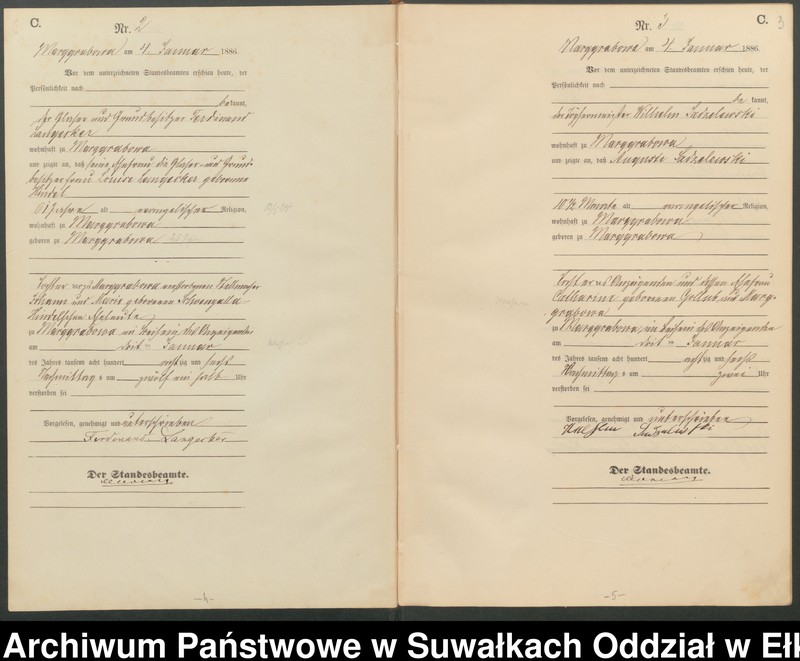 C.
Nr. 2
Marggrabowa am 4. Januar 1886.
Vor dem unterzeichneten Standesbeamten erschien heute, der
Persönlichkeit nach
bekannt,
der Glaser und Grundbesitzer Ferdinand
Langecker
wohnhaft zu Marggrabowa
und zeigte an, daß seine Ehefrau die Glaser- und Grund-
besitzerfrau Louise Langecker geborene
61 Jahre alt evangelischer Religion,
wohnhaft zu Marggrabowa
geboren zu Marggrabowa
Tochter verstorbenen
Johann und Marie geborenen
Eheleute
zu Marggrabowa im Beisein des Anzeigenden
am Januar
des Jahres tausend acht hundert achtzig und sechs
Nachmittags um zwölf ein halb Uhr
verstorben sei
Vorgelesen, genehmigt und unterschrieben
Ferdinand Langecker
Der Standesbeamte.
-4-
C. 3
Nr. 3
Marggrabowa am 4. Januar 1886.
Vor dem unterzeichneten Standesbeamten erschien heute, der
Persönlichkeit nach
be kannt,
der Töpfermeister Wilhelm Sadzelewski
wohnhaft zu Marggrabowa
und zeigte an, daß Auguste Sadzelewski
10½ Monate alt evangelischer Religion,
wohnhaft zu Marggrabowa
geboren zu Marggrabowa
Tochter des Anzeigenden und dessen Ehefrau
Catharine geborenen Gollub, aus Marg-
grabowa
zu Marggrabowa, im Beisein des Anzeigenden
am Januar
des Jahres tausend acht hundert achtzig und sechs
Nachmittags um zwei Uhr
verstorben sei
Vorgelesen, genehmigt und unterschrieben
Wilhelm Sadzelewski
Der Standesbeamte.
-5-
Archiwum Państwowe w Suwałkach Oddział w Ełk